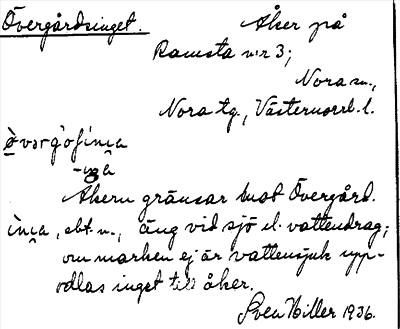 Övergårdsinget. Åker på
Ramsta nr 3;
Nora sn.,
Nora tg., Västernorrl. l.
Åkern gränsar mot Övergård.
, äng vid sjö el. vattendrag;
om marken ej är vattensjuk upp-
odlas inget till åker.
Sven Hiller 1936.